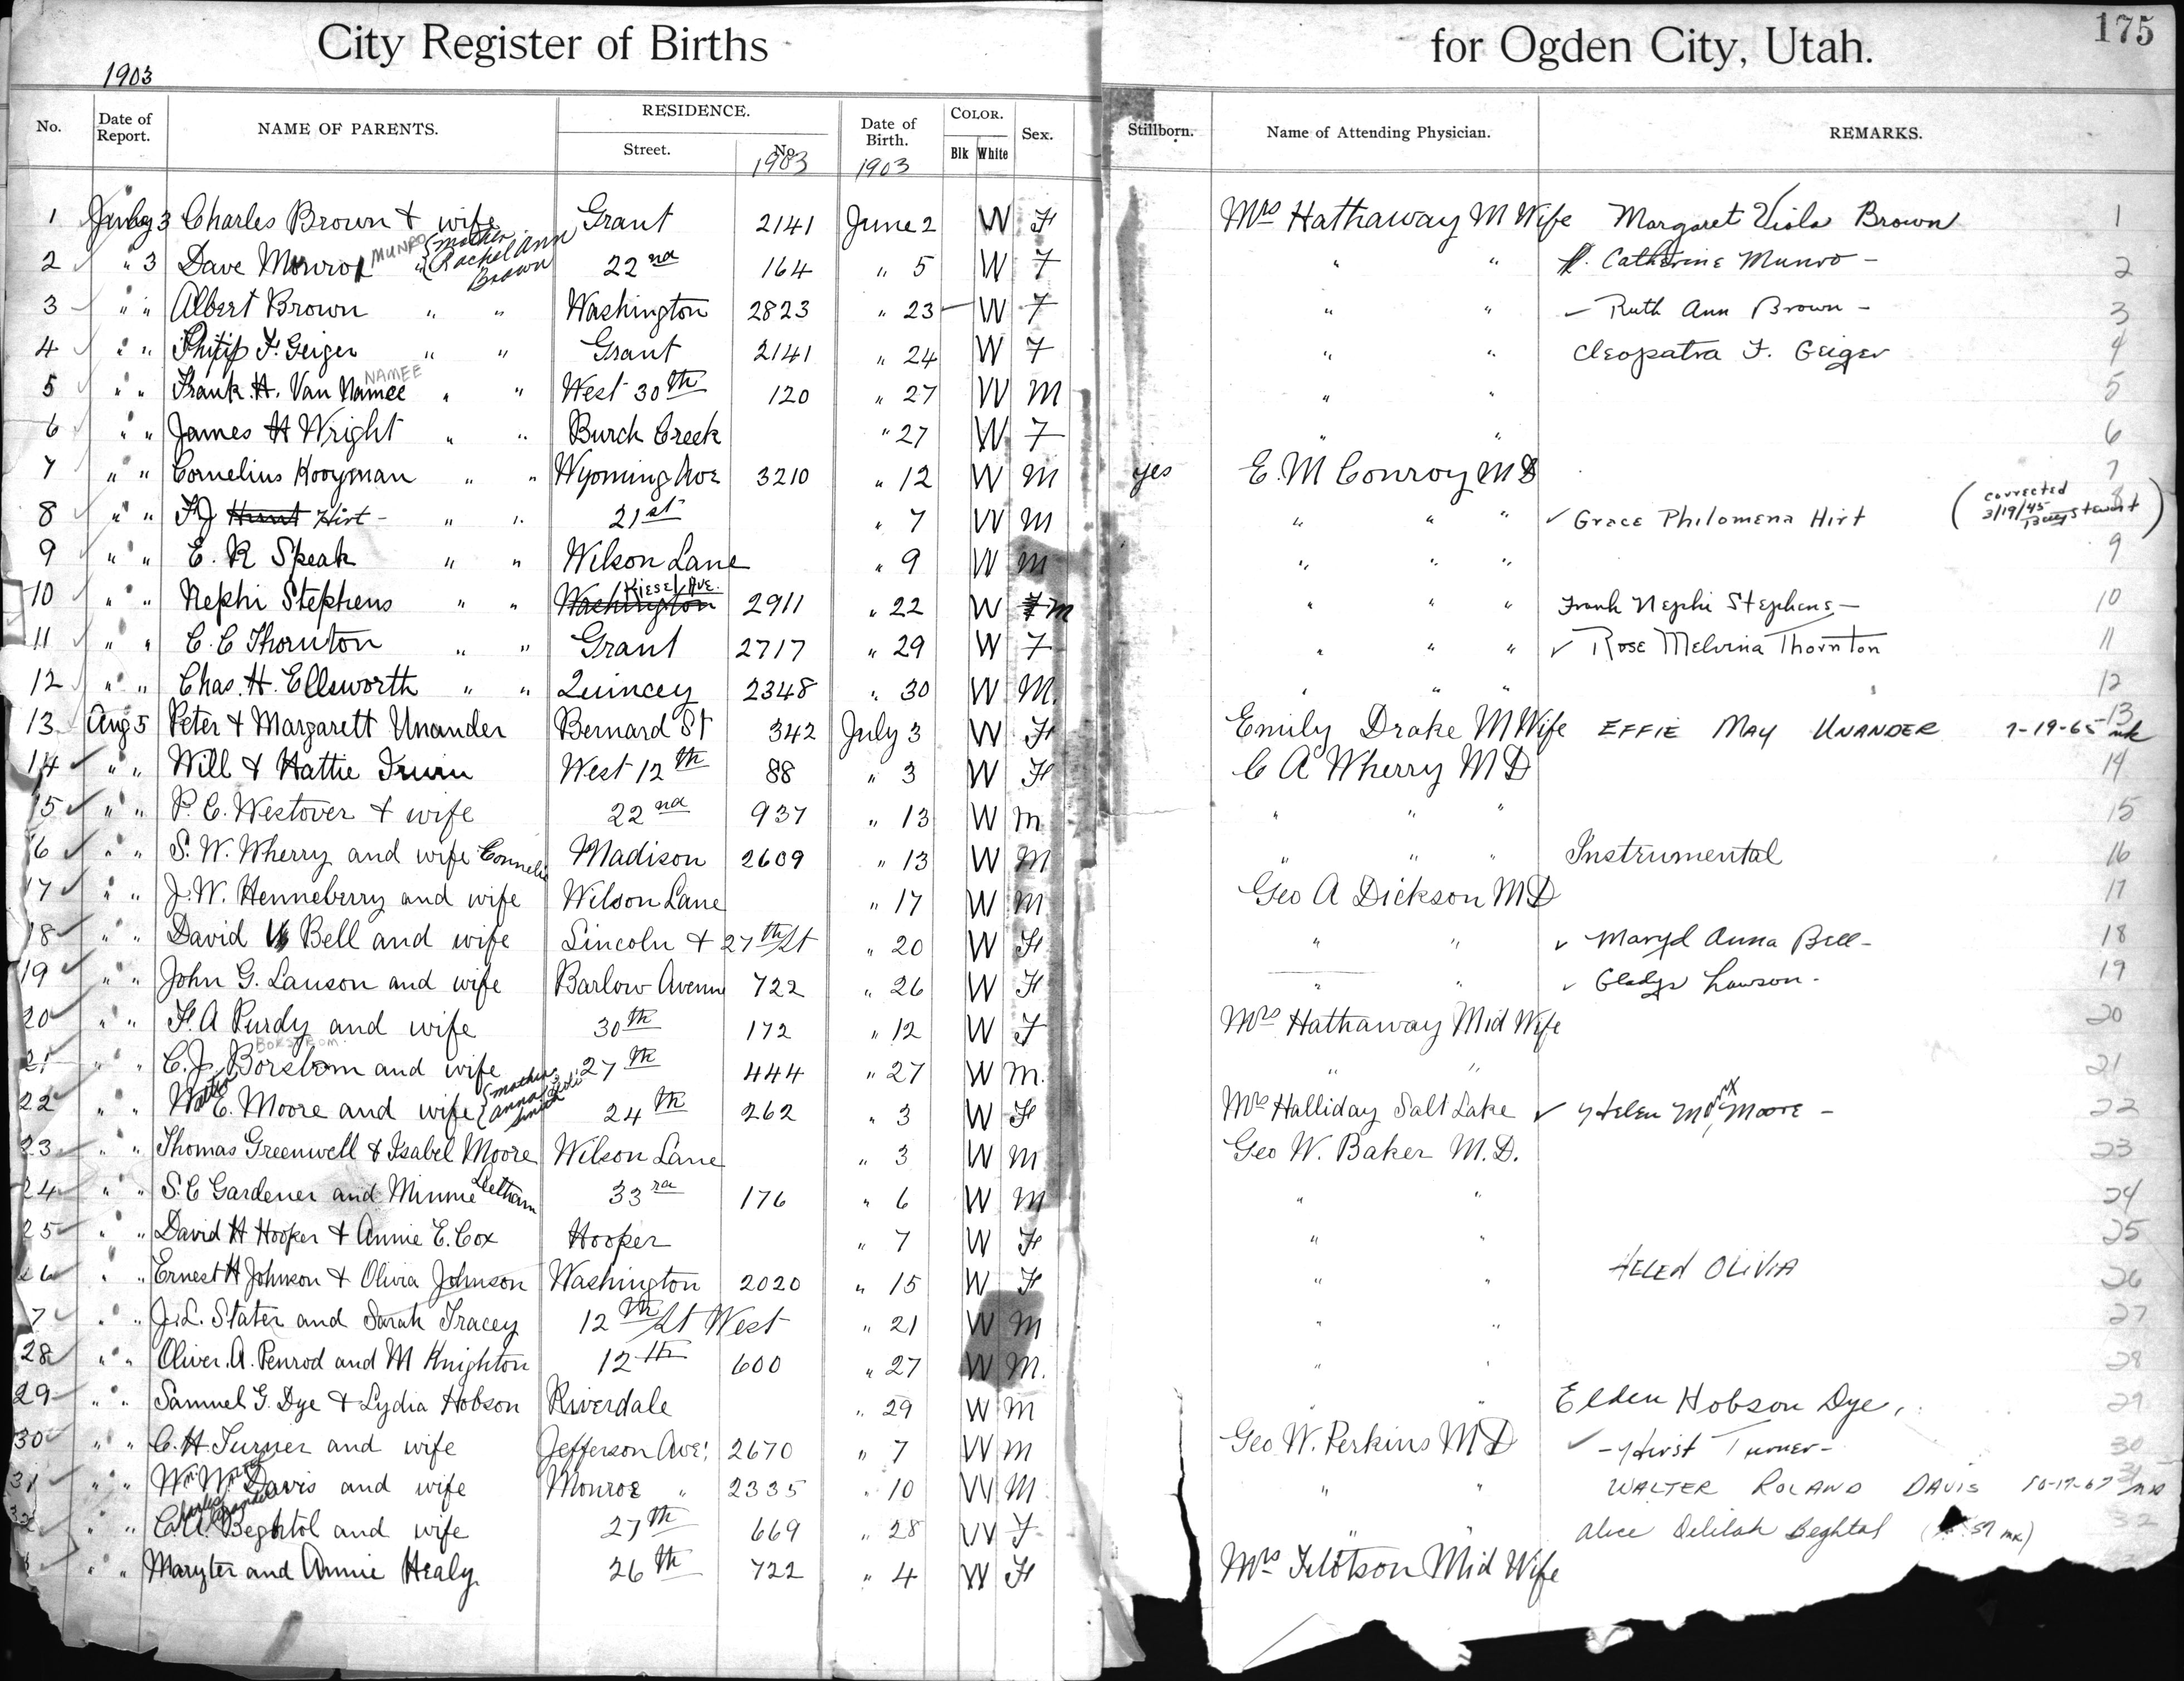 City Register of Births for Ogden City, Utah. 175
1903
No. Date of Report. NAME OF PARENTS. RESIDENCE. Street. No. Date of Birth. COLOR. Blk White Sex. Stillborn. Name of Attending Physician. REMARKS.
1903 1903
1 July 3 Charles Brown & wife Grant 2141 June 2 W F Mrs Hathaway M Wife Margaret Viola Brown 1
2 " 3 Dave Monro MUNRO " { mother Rachel Ann Brown 22nd 164 " 5 W F " " Catherine Munro - 2
3 " " Albert Brown " " Washington 2823 " 23 W F " " Ruth Ann Brown - 3
4 " " Philip F. Geiger " " Grant 2141 " 24 W F " " Cleopatra F. Geiger 4
5 " " Frank H. Van Namee NAMEE " " West 30th 120 " 27 W M " " 5
6 " " James H Wright " " Burch Creek " 27 W F " " 6
7 " " Cornelius Kooyman " " Wyoming Ave 3210 " 12 W M yes E. M Conroy M D 7
8 " " F J Hunt Hirt - " " 21st " 7 W M " " " Grace Philomena Hirt (corrected 3/19/45 Betty Stewart) 8
9 " " E. R Speak " " Wilson Lane " 9 W M " " " 9
10 " " Nephi Stephens " " Washington KIESEL AVE. 2911 " 22 W F M " " " Frank Nephi Stephens - 10
11 " " C. C Thornton " " Grant 2717 " 29 W F " " " Rose Melvina Thornton 11
12 " " Chas. H. Ellsworth " " Quincey 2348 " 30 W M. " " " 12
13 Aug 5 Peter & Margarett Unander Bernard St 342 July 3 W F Emily Drake M Wife EFFIE MAY UNANDER 7-19-65 mk 13
14 " " Will & Hattie Irwin West 12th 88 " 3 W F C A Wherry M D 14
15 " " P. C. Westover & wife 22nd 937 " 13 W M " " " 15
16 " " S. W. Wherry and wife Cornelia Madison 2609 " 13 W M " " " Instrumental 16
17 " " J. W. Henneberry and wife Wilson Lane " 17 W M Geo A Dickson M D 17
18 " " David Bell and wife Lincoln & 27th St " 20 W F " " Anna Bell - 18
19 " " John G. Lauson and wife Barlow Avenue 722 " 26 W F " " Gladys Lawson - 19
20 " " F. A Purdy and wife 30th 172 " 12 W F Mrs Hathaway Mid Wife 20
21 " " C. J. Borsbom BORSTROM and wife 27th 444 " 27 W M. " " 21
22 " " Walter E. Moore and wife { mother Anna Smith 24th 262 " 3 W F Mrs Halliday Salt Lake Helen Moore - 22
23 " " Thomas Greenwell & Isabel Moore Wilson Lane " 3 W M Geo W. Baker M. D. 23
24 " " S. C Gardener and Minnie 33rd 176 " 6 W M " " 24
25 " " David H Hooper & Annie E. Cox Hooper " 7 W F " " 25
26 " " Ernest H Johnson & Olivia Johnson Washington 2020 " 15 W F " " HELEN OLIVIA 26
7 " " J. L. Stater and Sarah Tracey 12th St West " 21 W M " " 27
28 " " Oliver. A. Penrod and M Knighton 12th 600 " 27 W M. " " 28
29 " " Samuel G. Dye & Lydia Hobson Riverdale " 29 W M " " Elden Hobson Dye, 29
30 " " C. H. Turner and wife Jefferson Ave. 2670 " 7 W M Geo W. Perkins M D - Hirst Turner - 30
31 " " Wm W. Davis and wife Monroe " 2335 " 10 W M " " WALTER ROLAND DAVIS 10-17-67 31
32 " " C. A. Charles Beghtol and wife 27th 669 " 28 W F " " Alice Delilah Beghtol 32
" " and Annie Healy 26th 722 " 4 W F Mrs Mid Wife